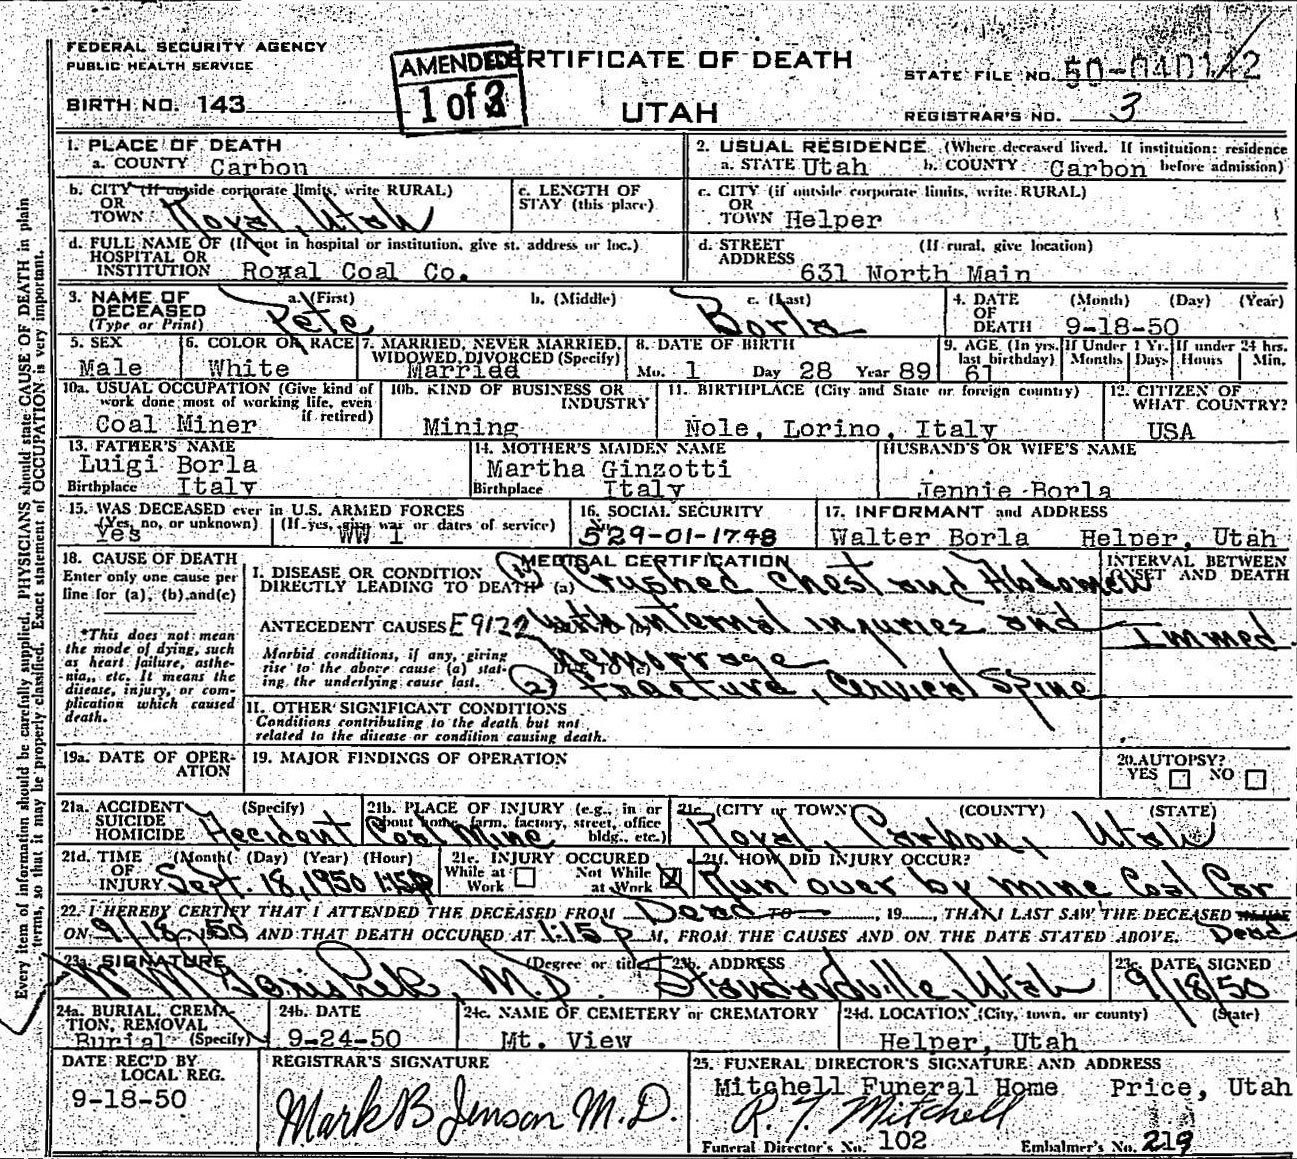 FEDERAL SECURITY AGENCY
PUBLIC HEALTH SERVICE
BIRTH NO. 143
AMENDED
1 of 3
CERTIFICATE OF DEATH
UTAH
STATE FILE NO. 50-040142
REGISTRAR'S NO. 3
Every item of information should be carefully supplied. PHYSICIANS should state CAUSE OF DEATH in plain
terms, so that it may be properly classified. Exact statement of OCCUPATION is very important.
1. PLACE OF DEATH
a. COUNTY Carbon
2. USUAL RESIDENCE (Where deceased lived. If institution: residence
a. STATE Utah b. COUNTY Carbon before admission)
b. CITY (If outside corporate limits, write RURAL)
OR
TOWN Royal, Utah
c. LENGTH OF
STAY (this place)
c. CITY (if outside corporate limits, write RURAL)
OR
TOWN Helper
d. FULL NAME OF (If not in hospital or institution, give st. address or loc.)
HOSPITAL OR
INSTITUTION Royal Coal Co.
d. STREET (If rural, give location)
ADDRESS
631 North Main
3. NAME OF DECEASED
(Type or Print)
a. (First) b. (Middle) c. (Last)
Pete Borla
4. DATE (Month) (Day) (Year)
OF
DEATH 9-18-50
5. SEX
Male
6. COLOR OR RACE
White
7. MARRIED, NEVER MARRIED,
WIDOWED, DIVORCED (Specify)
Married
8. DATE OF BIRTH
Mo. 1 Day 28 Year 89
9. AGE (In yrs. last birthday)
61
If Under 1 Yr.
Months Days
If under 24 hrs.
Hours Min.
10a. USUAL OCCUPATION (Give kind of
work done most of working life, even
if retired)
Coal Miner
10b. KIND OF BUSINESS OR
INDUSTRY
Mining
11. BIRTHPLACE (City and State or foreign country)
Nole, Lorino, Italy
12. CITIZEN OF
WHAT COUNTRY?
USA
13. FATHER'S NAME
Luigi Borla
Birthplace Italy
14. MOTHER'S MAIDEN NAME
Martha Ginzotti
Birthplace Italy
HUSBAND'S OR WIFE'S NAME
Jennie Borla
15. WAS DECEASED ever in U.S. ARMED FORCES
(Yes, no, or unknown) (If yes, give war or dates of service)
Yes WW 1
16. SOCIAL SECURITY
529-01-1748
17. INFORMANT and ADDRESS
Walter Borla Helper, Utah
18. CAUSE OF DEATH
Enter only one cause per
line for (a), (b), and (c)
*This does not mean
the mode of dying, such
as heart failure, asthe-
nia,, etc. It means the
disease, injury, or com-
plication which caused
death.
MEDICAL CERTIFICATION
I. DISEASE OR CONDITION
DIRECTLY LEADING TO DEATH* (a)
(1) Crushed chest and Abdomen
ANTECEDENT CAUSES E9122 DUE TO (b)
with internal injuries and
Morbid conditions, if any, giving
rise to the above cause (a) stat-
ing the underlying cause last.
hemorrage
DUE TO (c)
(2) Fracture, Cervical Spine
INTERVAL BETWEEN
ONSET AND DEATH
Immed.
II. OTHER SIGNIFICANT CONDITIONS
Conditions contributing to the death but not
related to the disease or condition causing death.
19a. DATE OF OPER-
ATION
19. MAJOR FINDINGS OF OPERATION
20. AUTOPSY?
YES NO
21a. ACCIDENT (Specify)
SUICIDE
HOMICIDE Accident
21b. PLACE OF INJURY (e.g., in or
about home, farm, factory, street, office
bldg., etc.)
Coal Mine
21c. (CITY or TOWN) (COUNTY) (STATE)
Royal, Carbon, Utah
21d. TIME (Month) (Day) (Year) (Hour)
OF
INJURY Sept. 18, 1950 1:15P
21e. INJURY OCCURED
While at Work Not While at Work
21f. HOW DID INJURY OCCUR?
Run over by mine Coal Car
22. I HEREBY CERTIFY THAT I ATTENDED THE DECEASED FROM Dead TO , 19 , THAT I LAST SAW THE DECEASED ALIVE Dead
ON 9/18, 1950 AND THAT DEATH OCCURED AT 1:15 P M, FROM THE CAUSES AND ON THE DATE STATED ABOVE.
23a. SIGNATURE (Degree or title)
M.D.
23b. ADDRESS
Standardville, Utah
23c. DATE SIGNED
9/18/50
24a. BURIAL, CREMA-
TION, REMOVAL
(Specify)
Burial
24b. DATE
9-24-50
24c. NAME OF CEMETERY or CREMATORY
Mt. View
24d. LOCATION (City, town, or county) (State)
Helper, Utah
DATE REC'D BY
LOCAL REG.
9-18-50
REGISTRAR'S SIGNATURE
Mark B Jenson M.D.
25. FUNERAL DIRECTOR'S SIGNATURE AND ADDRESS
Mitchell Funeral Home Price, Utah
R. T. Mitchell
Funeral Director's No. 102 Embalmer's No. 219